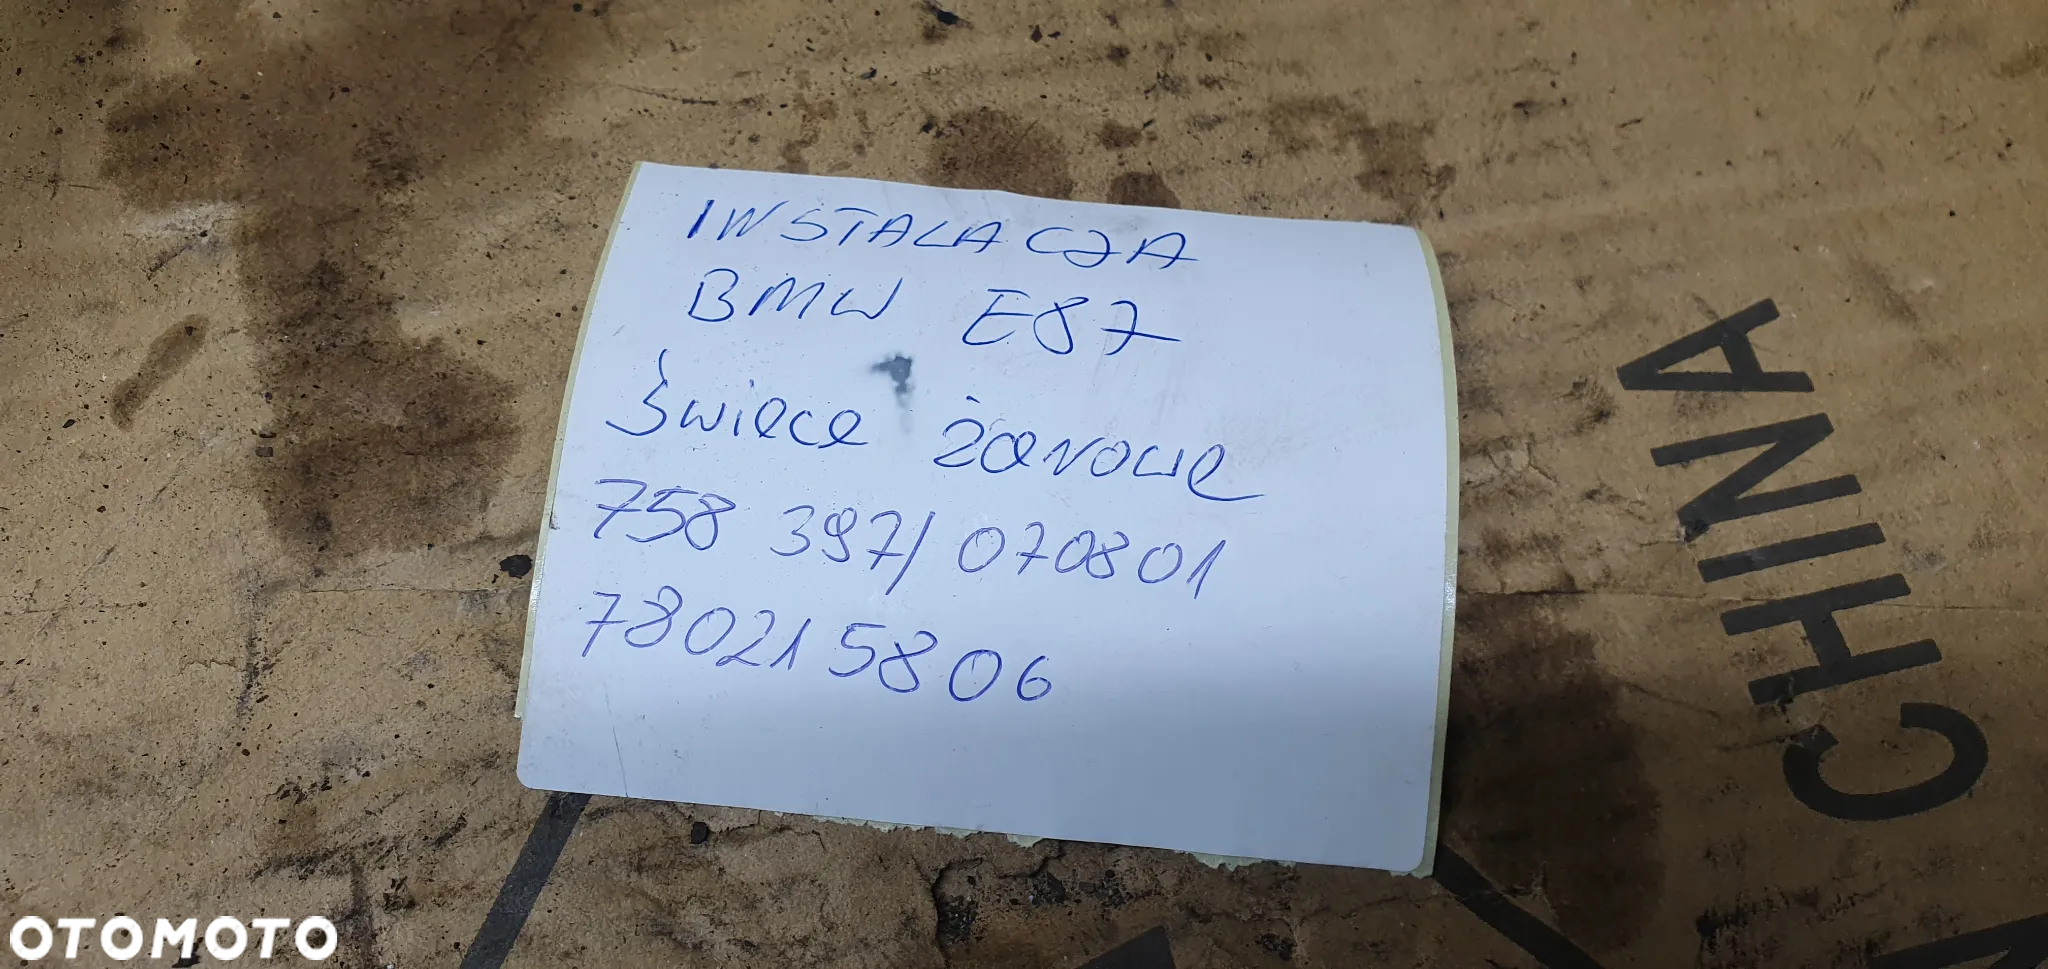 INSTALACJA
BMW E87
Świece żarowe
758 397/070801
780215806
CHINA
OTOMOTO